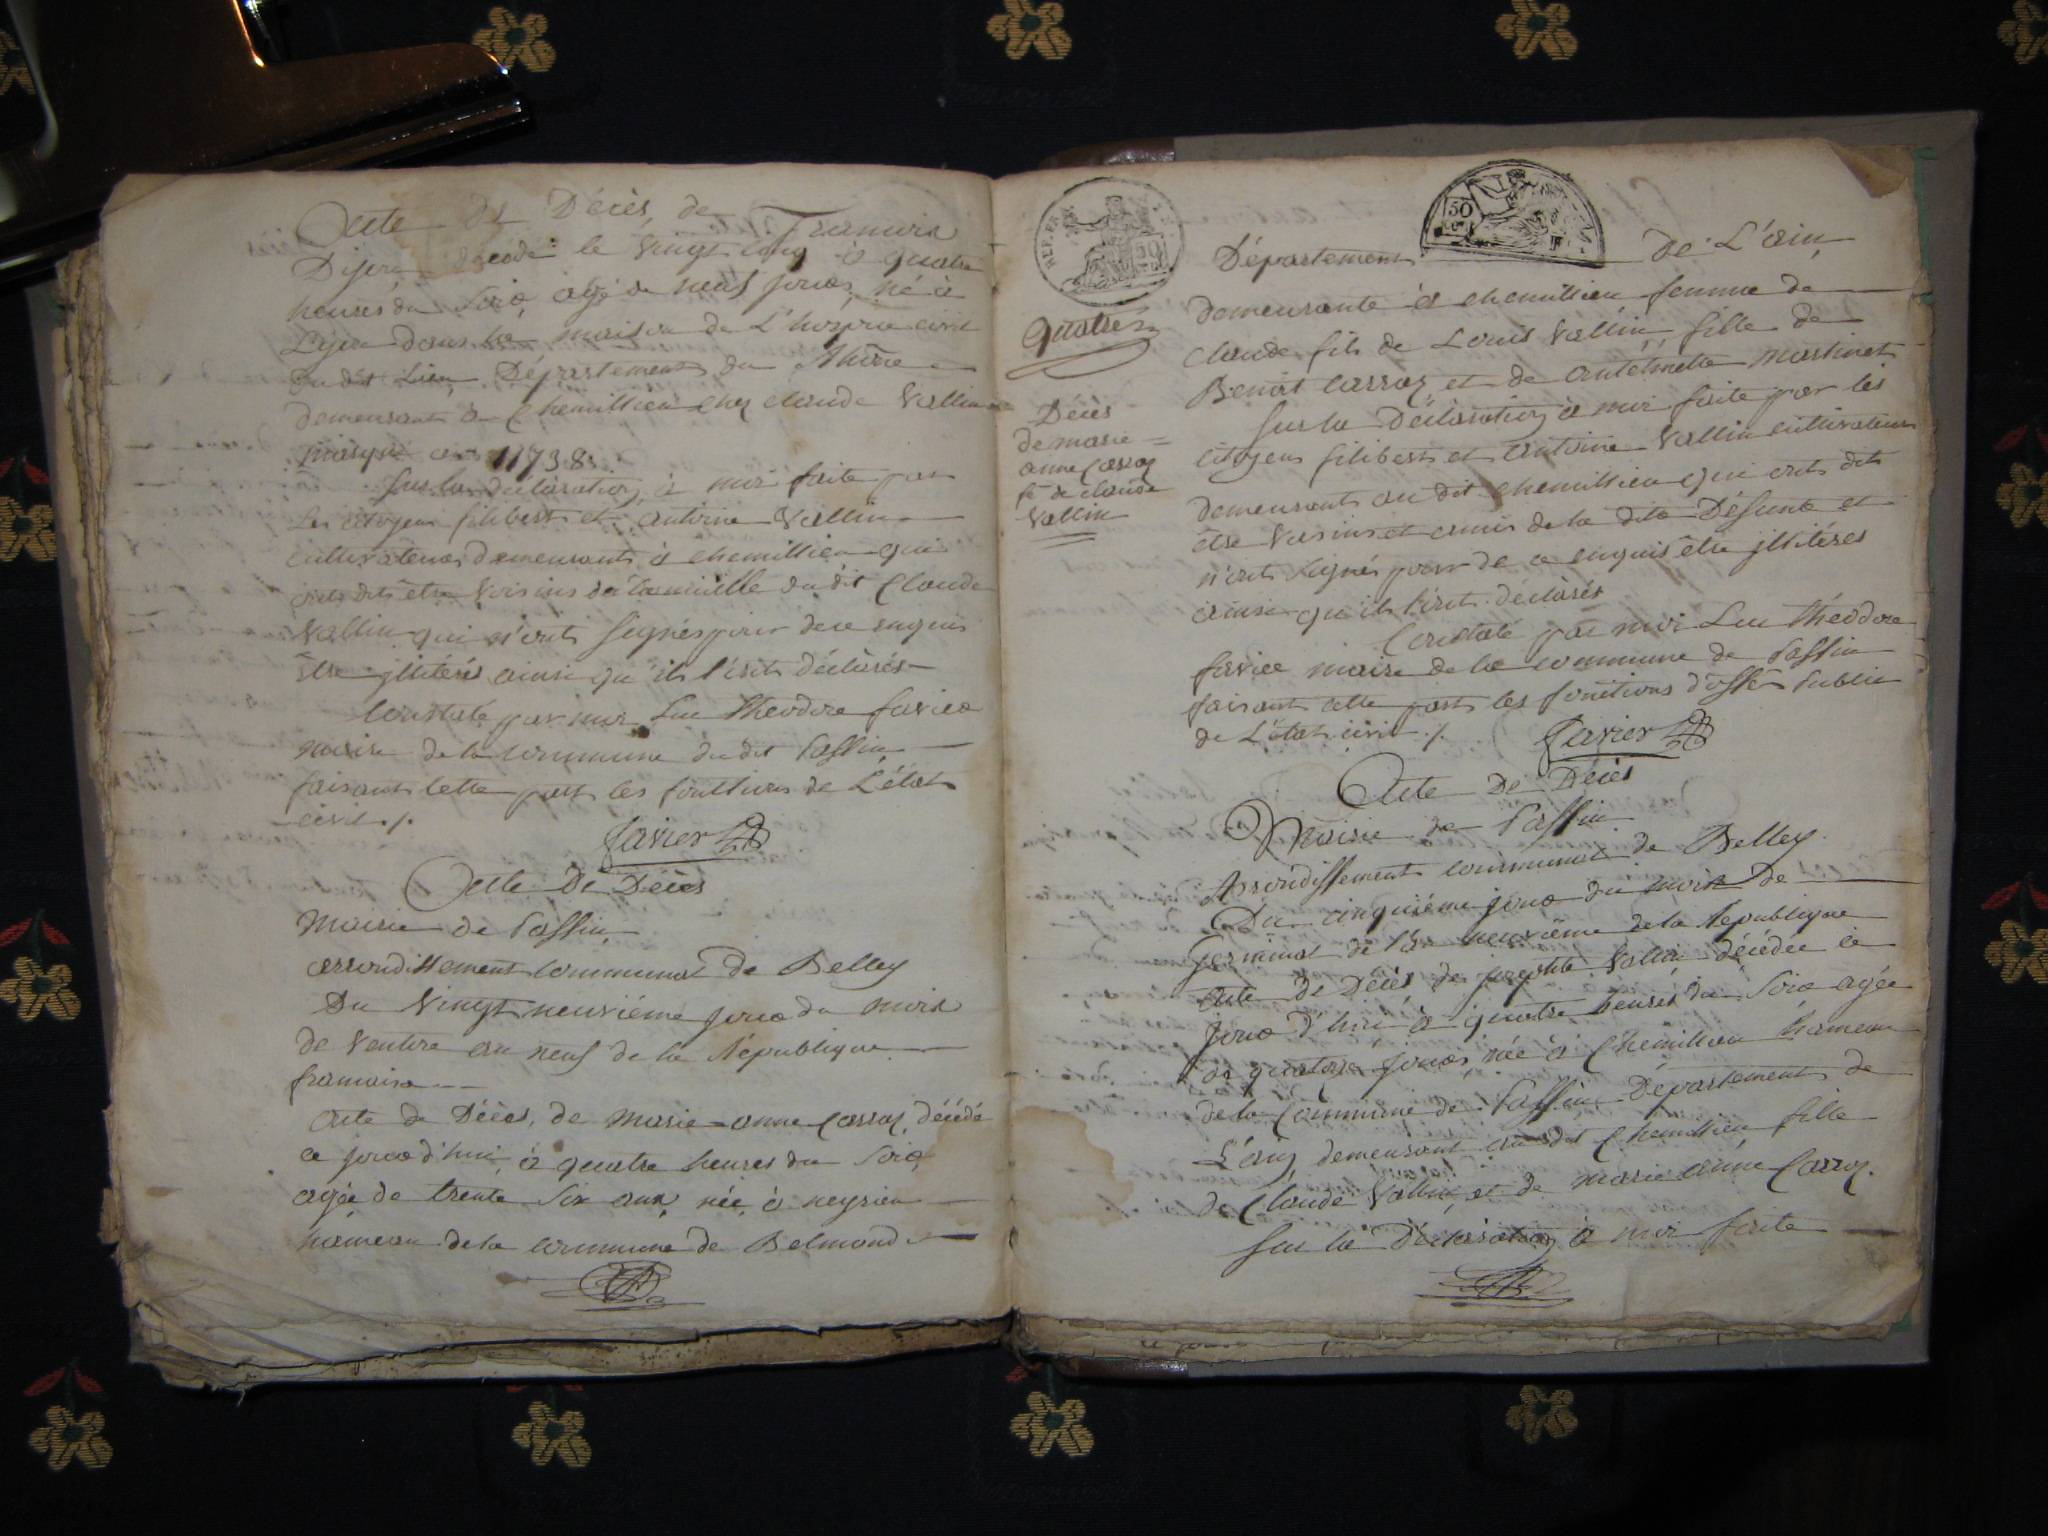 Acte de Décès, de francois
Dijon décédé le vingt cinq à quatre
heures du soir, agé de neuf jours, né à
Lyon dans la maison de L'hospice civil
du dit Lieu, Département du Rhône
demeurant à Chemillieu chez claude Vallin
marqué 11738.
sur la déclaration à moi faite par
les citoyens filibert et antoine Vallin
cultivateurs demeurants à chemillieu qui
ont dit être voisins de la du dit Claude
Vallin qui n'ont signés pour de ce enquis
être illitérés ainsi qu'ils l'ont déclarés
Constaté par moi Luc théodore favier
maire de la commune du dit Passin
faisant cette part les fonctions de L'état
civil ./.
favier
Acte De Décès
Mairie de Passin
arrondissement communal De Belley
Du Vingt neuvième jour du mois
de Ventose an neuf de la République
francaise
Acte de Décès, de marie-anne Carraz, décédé
ce jour d'hui à quatre heures du soir,
agée de trente six ans, née à neyrieu
hameau de la commune de Belmond
quatre
Décès
de marie =
anne Carraz
fe de claude
Vallin
REP. FRA.
50
50
Département de L'ain
demeurante à chemillieu femme de
claude fils de Louis Vallin, fille de
Benoit Carraz et de antelmette martinet
sur la Déclaration à moi faite par les
citoyens filibert et antoine Vallin cultivateurs
demeurants au dit chemillieu qui ont dit
être voisins et amis de la dite Défunte et
n'ont signés pour de ce enquis être illitérés
ainsi qu'ils l'ont déclarés
Constaté par moi Luc théodore
favier maire de la commune de Passin
faisant cette part les fonctions d'offr public
de L'état civil ./. favier
Acte De Décès
Mairie de Passin
Arrondissement communal de Belley
Du cinquième jour du mois de
Germinal de l'an neuvième de la République
Acte de Décès de Vallin décédée ce
jour d'hui à quatre heures du soir agée
de quatorze jours, née à Chemillieu hameau
de la Commune de Passin Département de
L'ain, demeurant au dit Chemillieu fille
de Claude Vallin, et de marie anne Carraz.
sur la Déclaration à moi faite